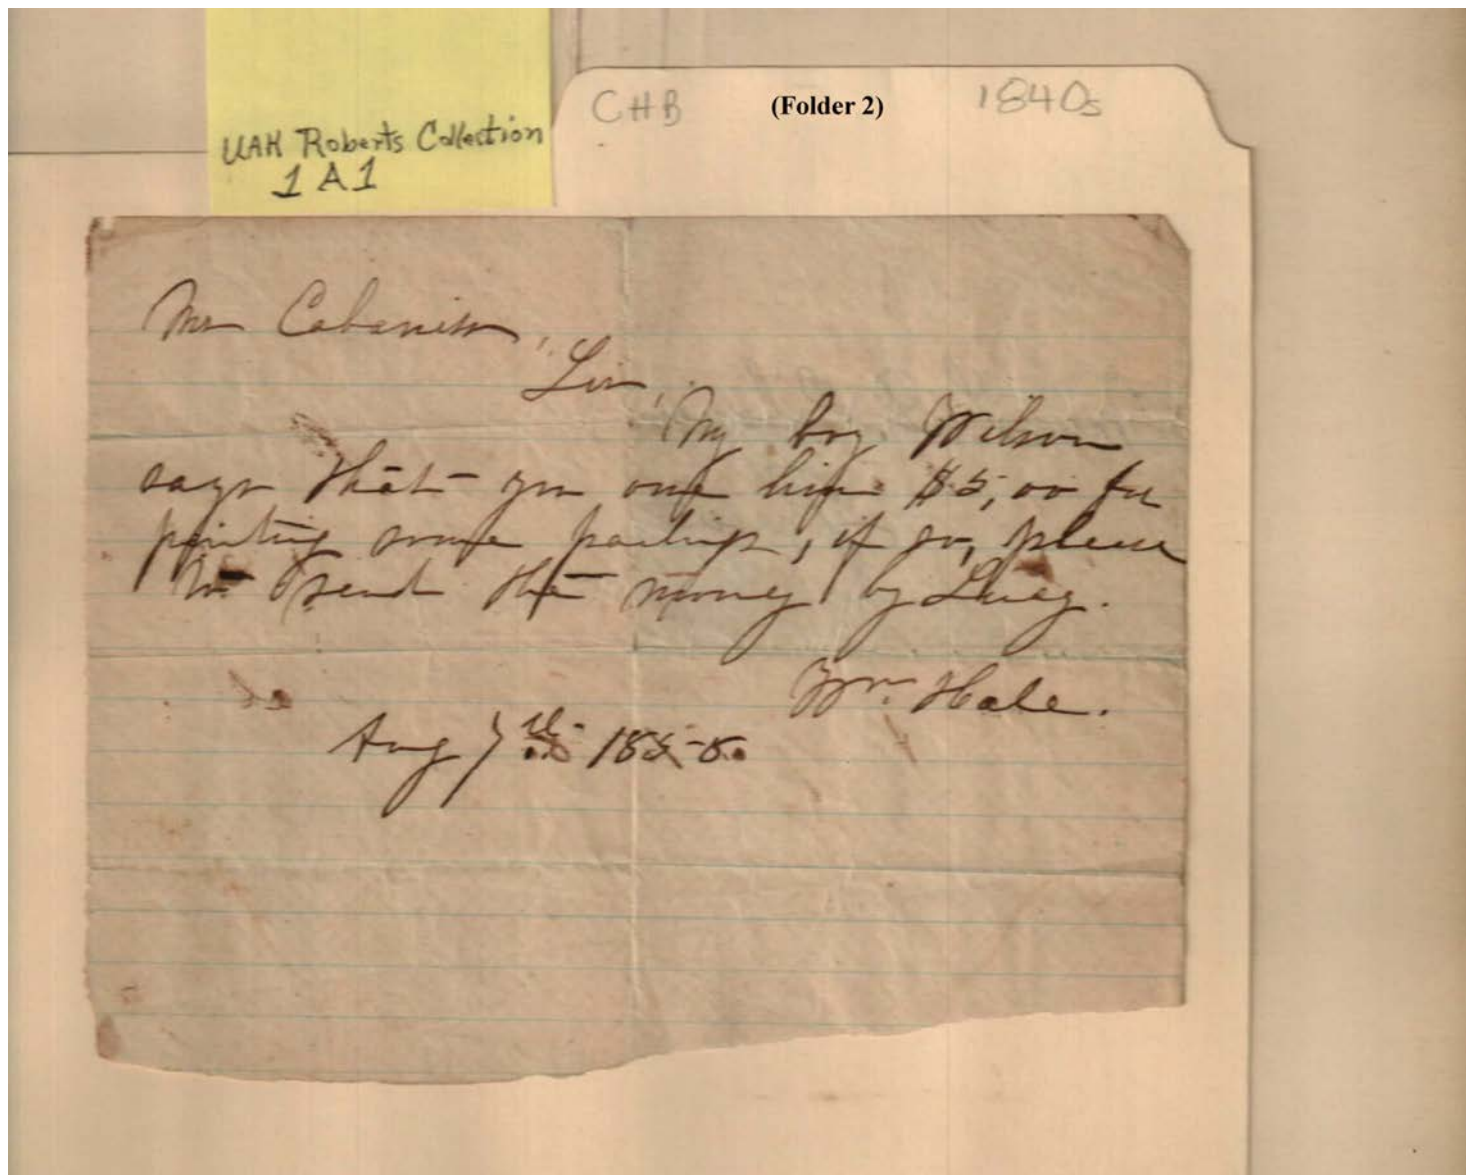 UAH Roberts Collection
1A1
CHB (Folder 2) 1840s
Mr Cabaniss,
Sir,
My boy Wilson
says that you owe him $5,00 for
painting some palings, if so, please
to send the money by Lucy.
Wm. Hale.
Aug 7th 1855.